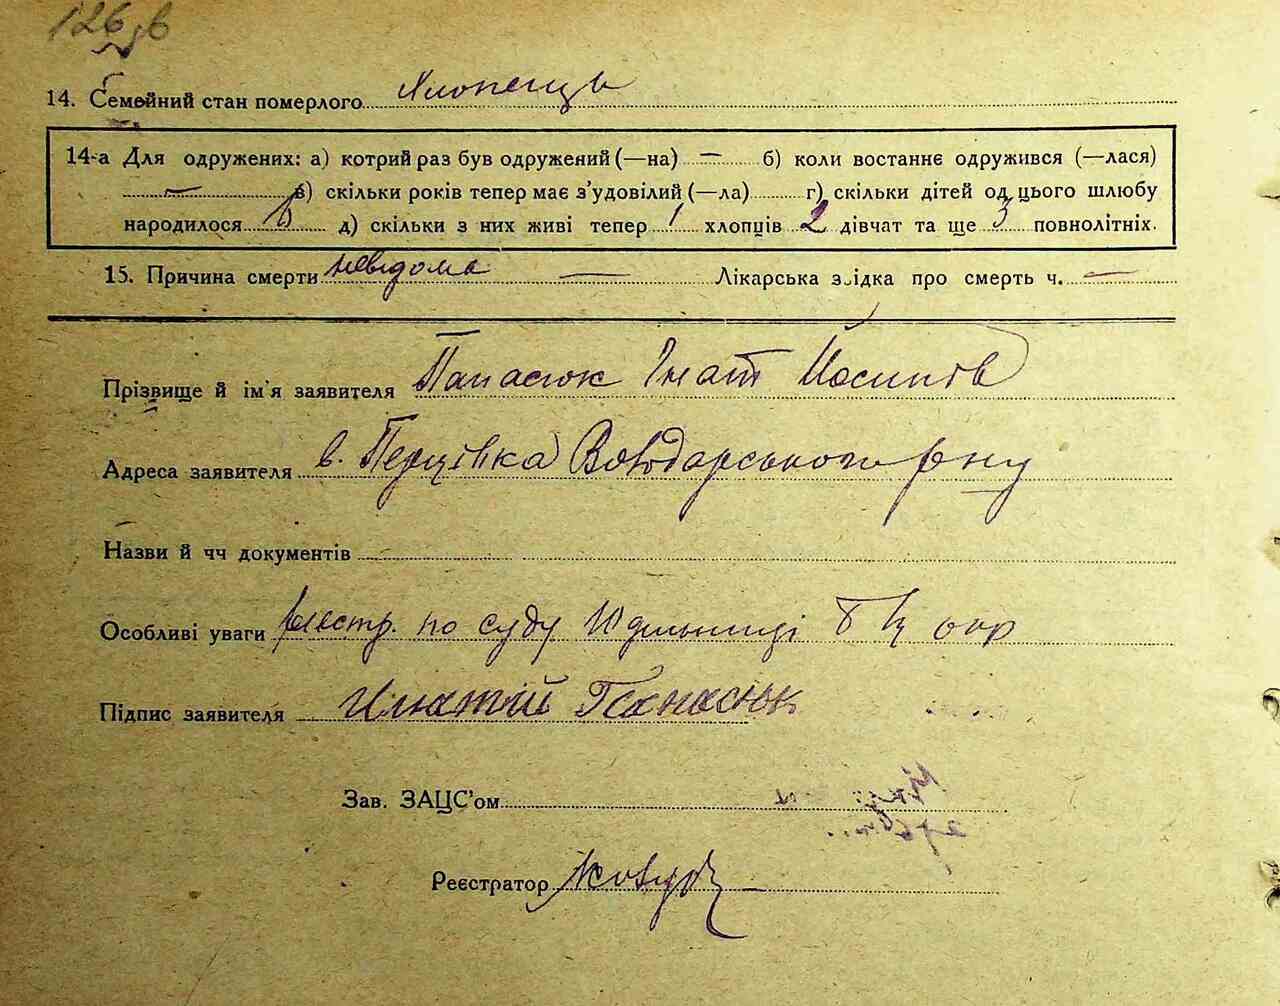 126 зв
14. Семейний стан померлого Хлопець
14-а Для одружених: а) котрий раз був одружений (—на) — б) коли востаннє одружився (—лася)
— в) скільки років тепер має з'удовілий (—ла) г) скільки дітей од цього шлюбу
народилося 6 д) скільки з них живі тепер 1 хлопців 2 дівчат та ще 3 повнолітніх.
15. Причина смерти невідома — Лікарська звідка про смерть ч. —
Прізвище й ім'я заявителя Панасюк Гнат Йосипів
Адреса заявителя в. Перцівка Володарського р-ну
Назви й чч документів
Особливі уваги реєстр. по суду 10 дільниці БЦ окр
Підпис заявителя Игнатій Панасюк
Зав. ЗАЦС'ом
Реєстратор